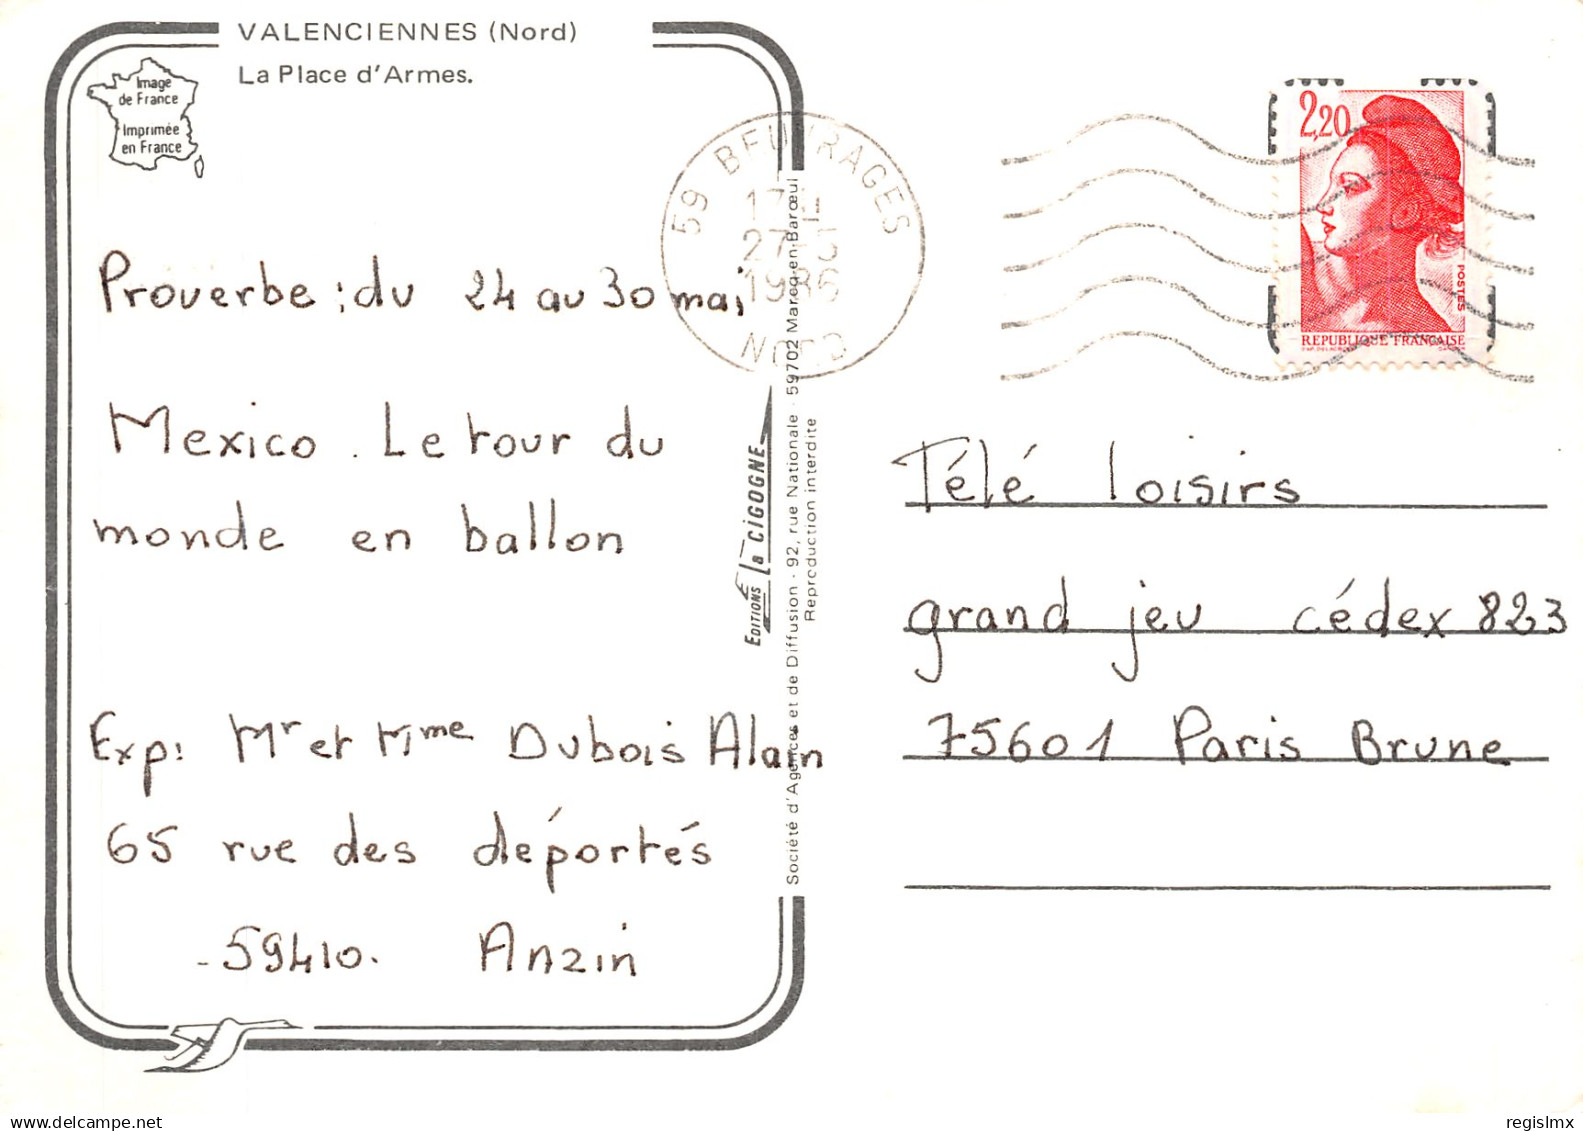 VALENCIENNES (Nord)
La Place d'Armes.
Image
de France
Imprimée
en France
Proverbe : du 24 au 30 mai
Mexico. Le tour du
monde en ballon
Exp: Mr et Mme Dubois Alain
65 rue des déportés
-59410. Anzin
59 BEUVRAGES
27-5
1986
NORD
EDITIONS La CIGOGNE
Société d'Agences et de Diffusion - 92, rue Nationale - 59702 Marcq-en-Barœul
Reproduction interdite
2,20
POSTES
REPUBLIQUE FRANÇAISE
Télé loisirs
grand jeu cédex 823
75601 Paris Brune
regislmx